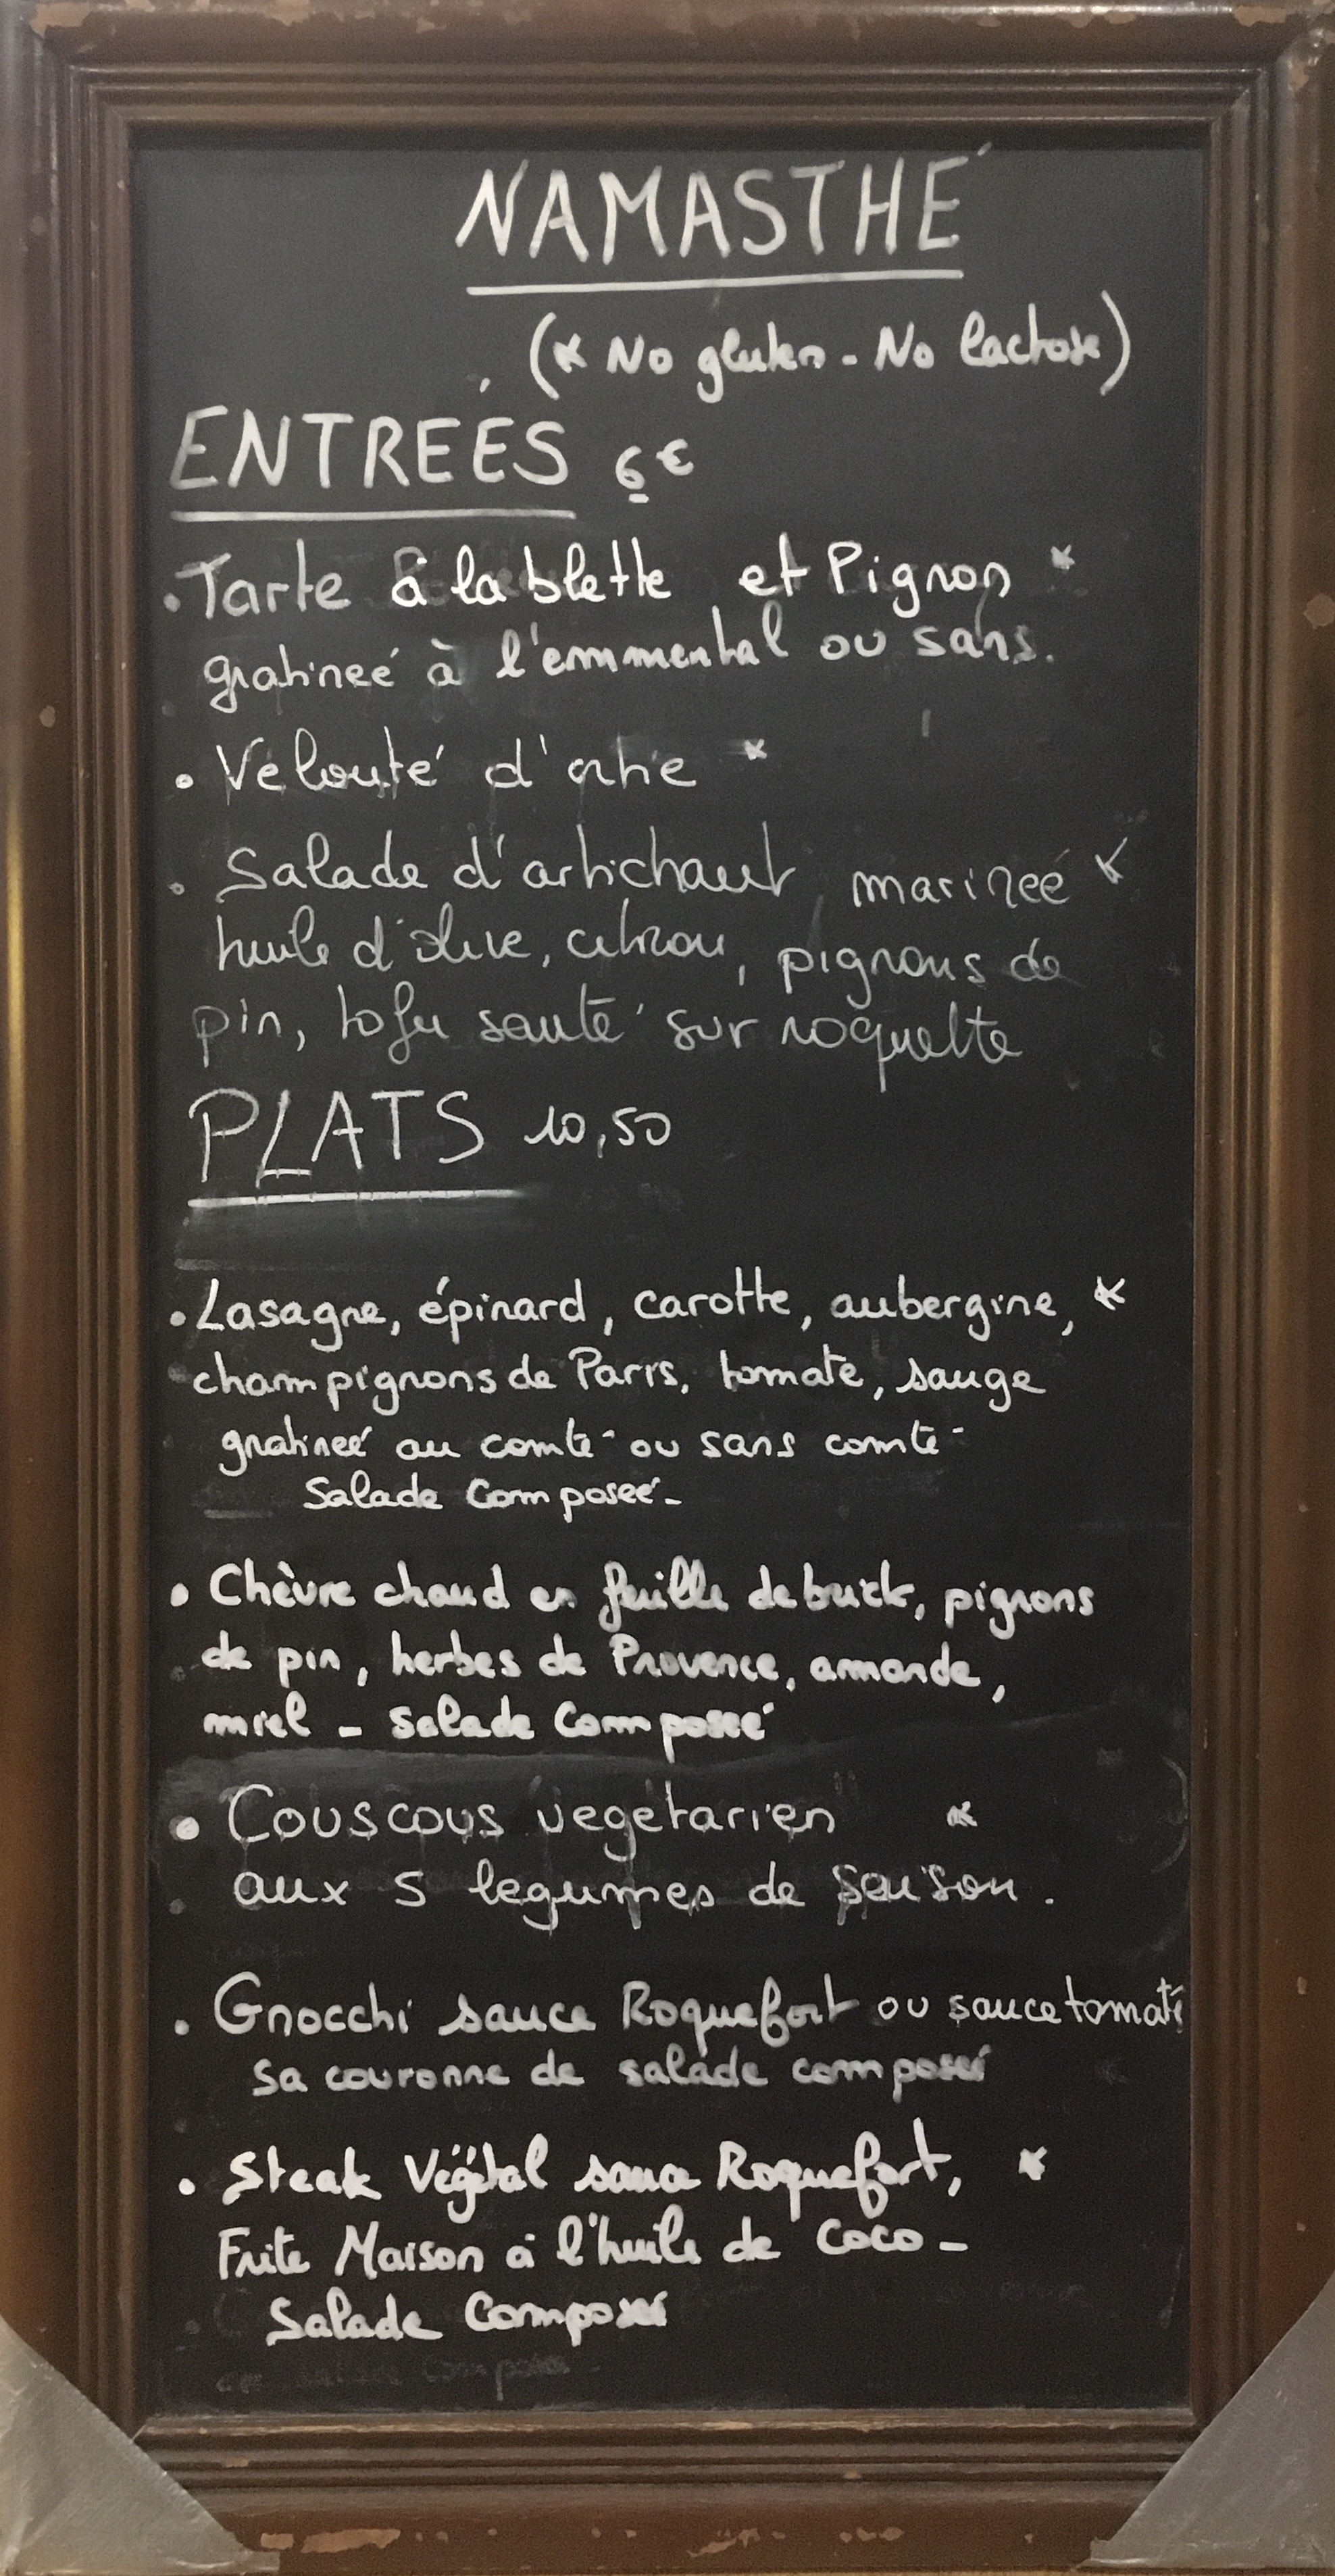 NAMASTHÉ
(* No gluten - No lactose)
ENTREÉS 6€
• Tarte à la blette et Pignon *
gratineé à l'emmental ou sans.
• Velouté d'ortie *
• Salade d'artichaut marineé *
huile d'olive, citron, pignons de
pin, tofu sauté sur roquette
PLATS 10,50
• Lasagne, épinard, carotte, aubergine, *
champignons de Paris, tomate, sauge
gratineé au comté ou sans comté
Salade Composeé -
• Chèvre chaud en feuille de brick, pignons
de pin, herbes de Provence, amande,
miel - Salade Composeé
• Couscous vegetarien *
aux 5 legumes de saison.
• Gnocchi sauce Roquefort ou sauce tomate
sa couronne de salade composeé
• Steak Végétal sauce Roquefort, *
Frite Maison à l'huile de coco -
Salade Composeé